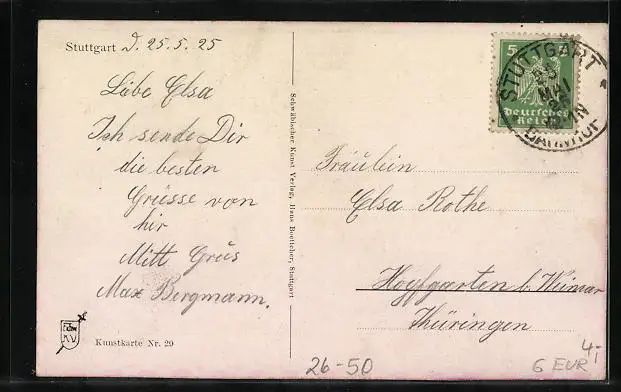 Stuttgart d. 25.5.25
Liebe Elsa
Ich sende Dir
die besten
Grüsse von
hir
Mitt Grus
Max Bergmann.
Kunstkarte Nr. 29
Schwäbischer Kunst Verlag, Hans Boettcher, Stuttgart
5
Deutsches
Reich
STUTTGART
MAI
BAHNHOF
Fräulein
Elsa Rothe
Hopfgarten b. Weimar
Thüringen
26-50
4,-
6 EUR